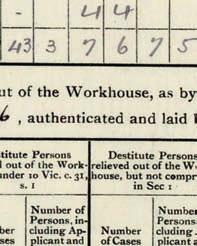 - 4 4
43 3 7 6 7 5
ut of the Workhouse, as by
6, authenticated and laid
titute Persons
out of the Work-
nder 10 Vic. c. 31,
s. 1
Destitute Persons
relieved out of the Wo
house, but not compr
in Sec 1
Number of
Persons, in-
cluding Ap-
plicant and
Number
of Cases
Number
Persons,
cluding
plicant a